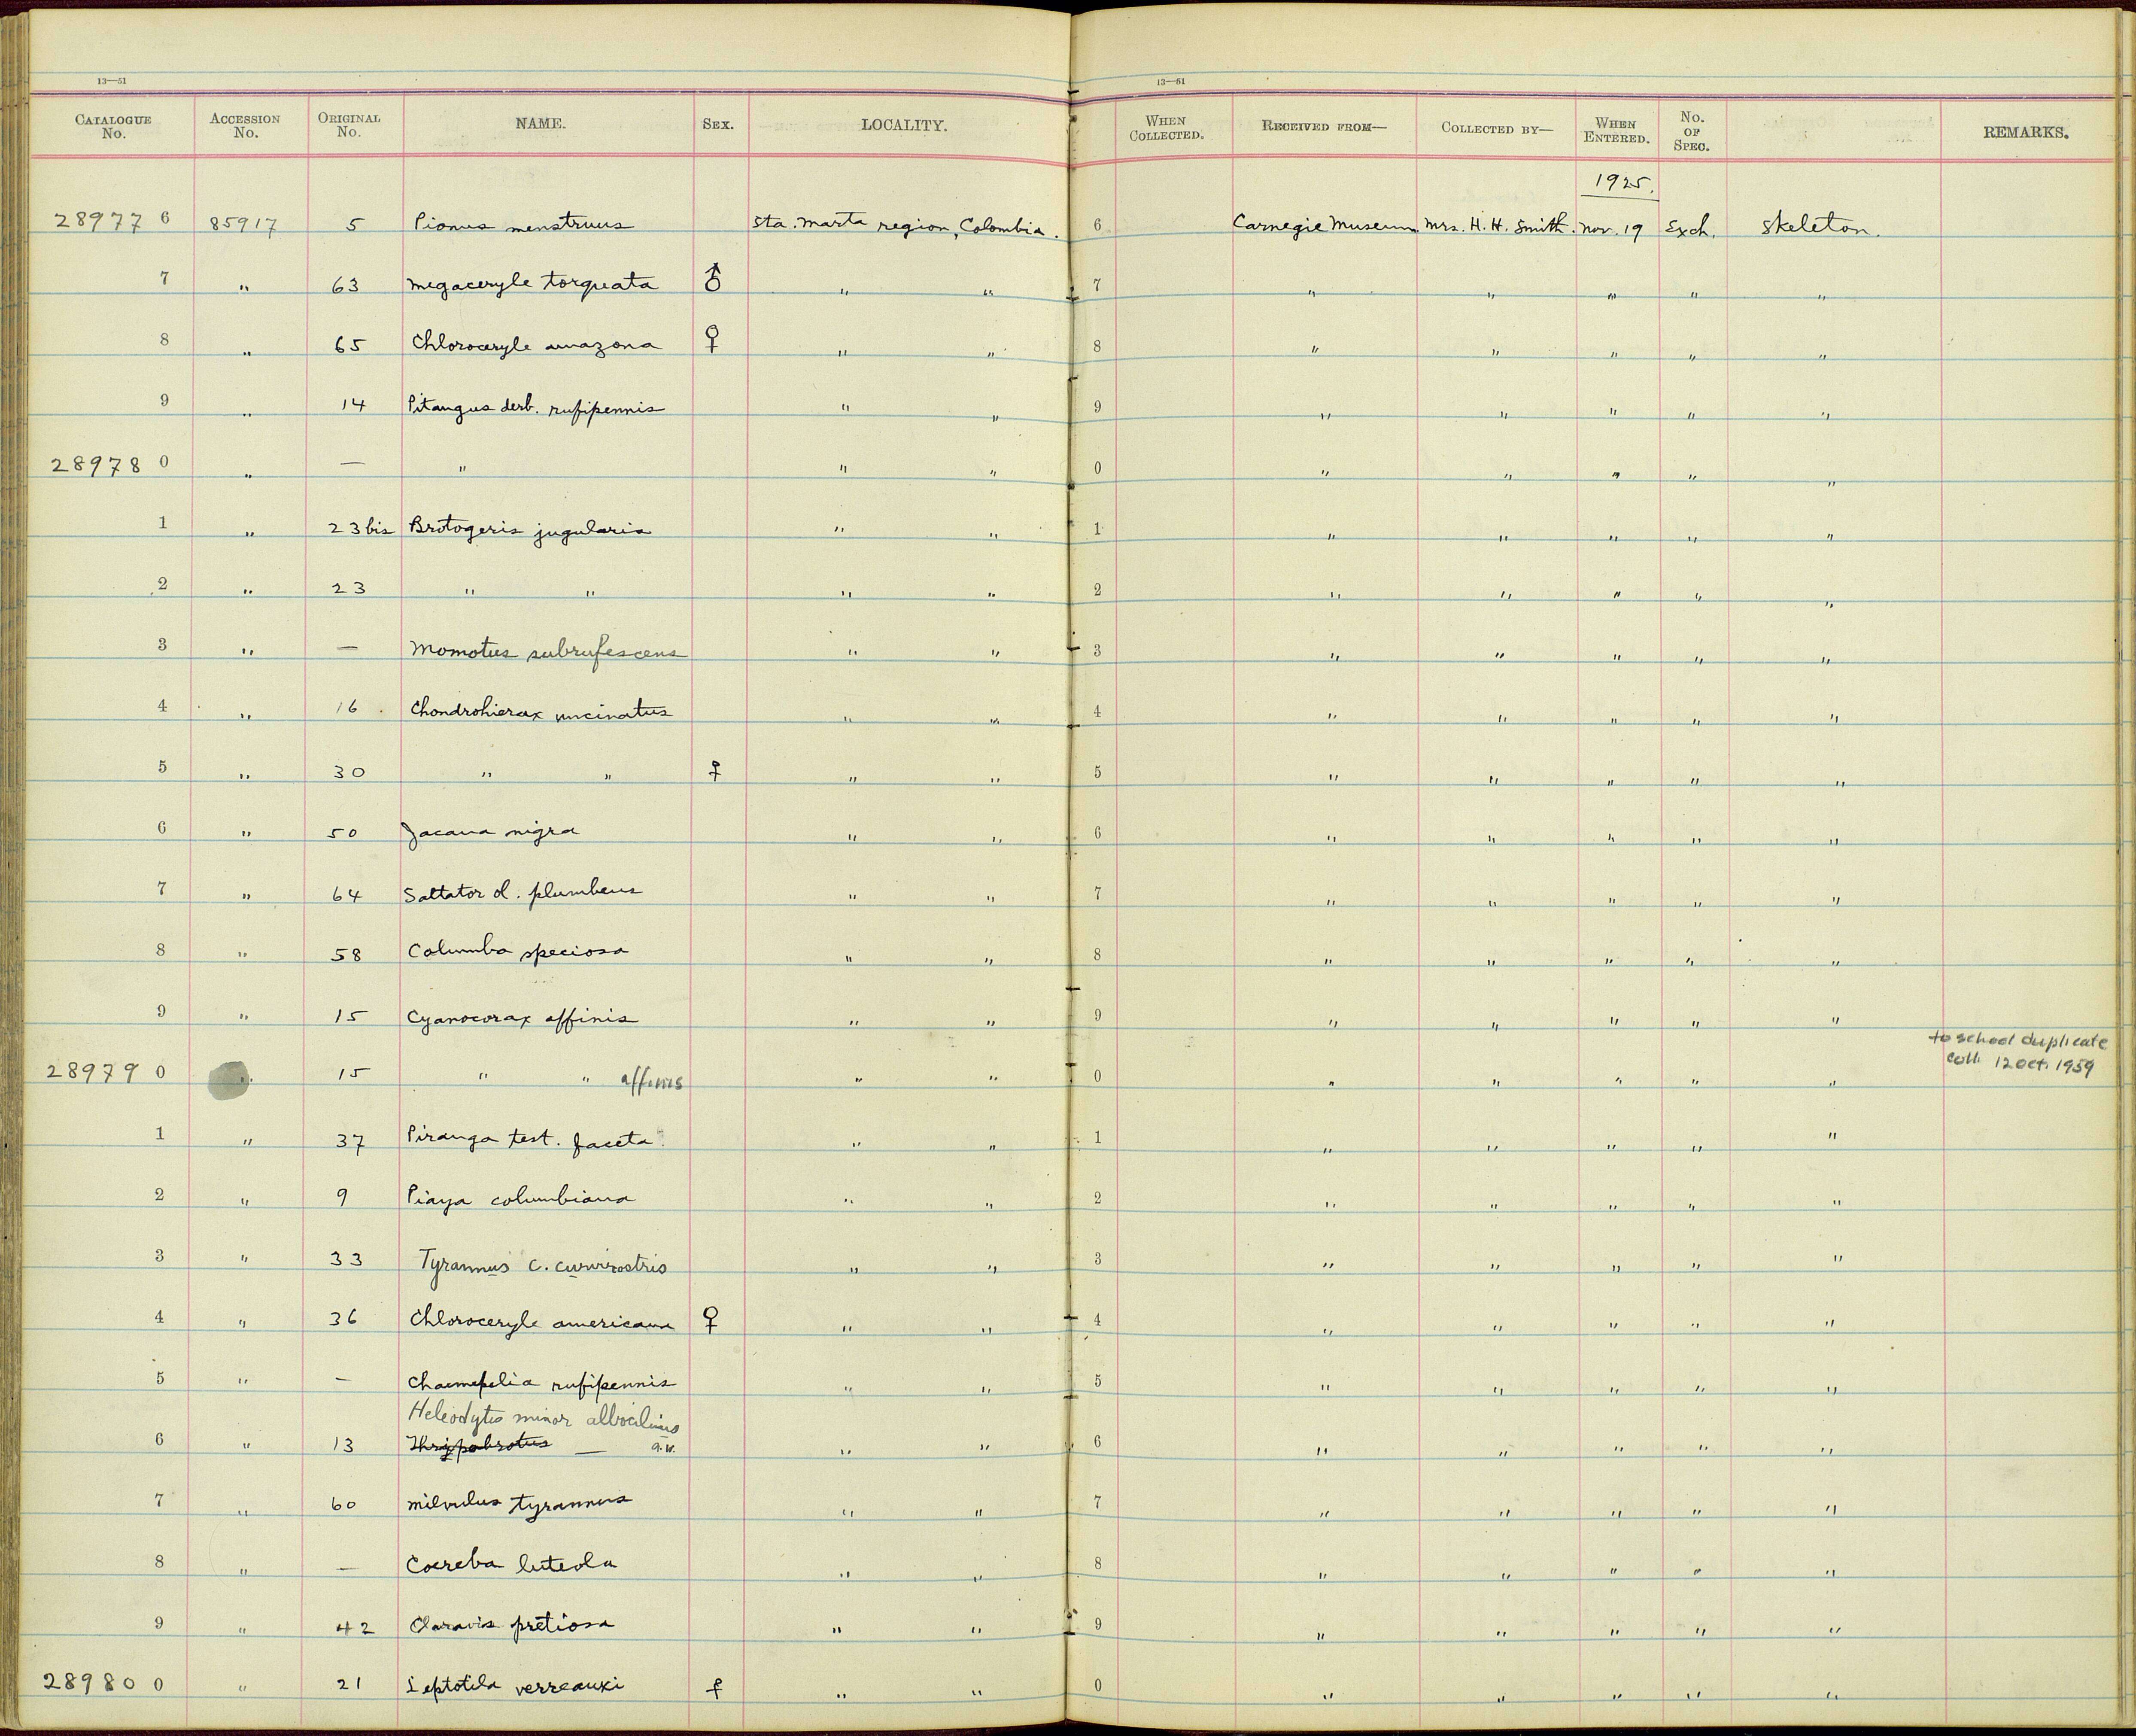 13—51
13—51
CATALOGUE No. ACCESSION No. ORIGINAL No. NAME. SEX. LOCALITY. WHEN COLLECTED. RECEIVED FROM— COLLECTED BY— WHEN ENTERED. No. OF SPEC. REMARKS.
1925.
28977 6 85917 5 Pionus menstruus Sta. Marta region, Colombia. 6 Carnegie Museum Mrs. H. H. Smith. Nov. 19 Exch. Skeleton.
7 " 63 Megaceryle torquata ♂ " " 7 " " " " "
8 " 65 Chloroceryle amazona ♀ " " 8 " " " " "
9 " 14 Pitangus derb. rufipennis " " 9 " " " " "
28978 0 " — " " " 0 " " " " "
1 " 23 bis Brotogeris jugularis " " 1 " " " " "
2 " 23 " " " " 2 " " " " "
3 " — Momotus subrufescens " " 3 " " " " "
4 " 16 Chondrohierax uncinatus " " 4 " " " " "
5 " 30 " " ♀ " " 5 " " " " "
6 " 50 Jacana nigra " " 6 " " " " "
7 " 64 Saltator ol. plumbeus " " 7 " " " " "
8 " 58 Columba speciosa " " 8 " " " " "
9 " 15 Cyanocorax affinis " " 9 " " " " "
to school duplicate
28979 0 " 15 " " affinis " " 0 " " " " " coll. 12 Oct. 1959
1 " 37 Piranga test. faceta. " " 1 " " " " "
2 " 9 Piaya columbiana " " 2 " " " " "
3 " 33 Tyrannus c. curvirostris " " 3 " " " " "
4 " 36 Chloroceryle americana ♀ " " 4 " " " " "
5 " — Chaemepelia rufipennis " " 5 " " " " "
Heleodytes minor albicilius
6 " 13 Thripobrotus — a.w. " " 6 " " " " "
7 " 60 Milvulus tyrannus " " 7 " " " " "
8 " — Coereba luteola " " 8 " " " " "
9 " 42 Claravis pretiosa " " 9 " " " " "
28980 0 " 21 Leptotila verreauxi ♀ " " 0 " " " " "